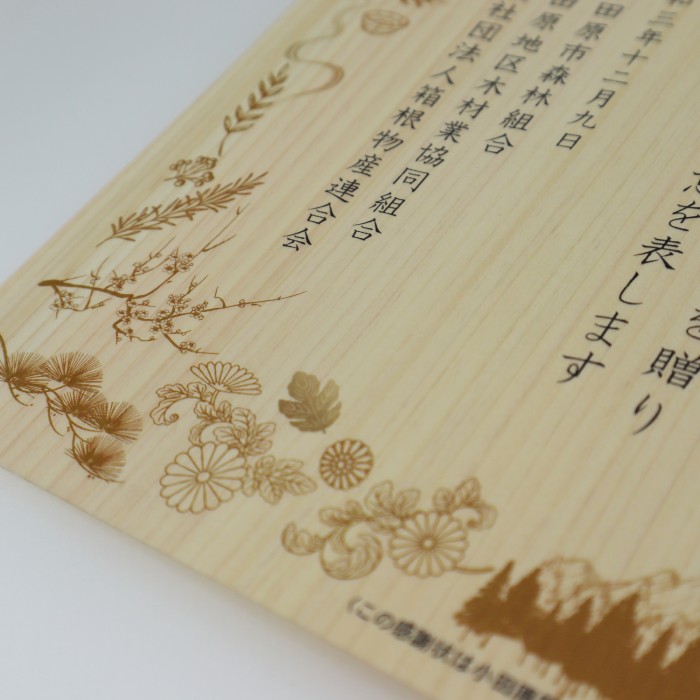 を贈り
を表します
三年十二月九日
田原市森林組合
田原地区木材業協同組合
社団法人箱根物産連合会
(この感謝状は小田原